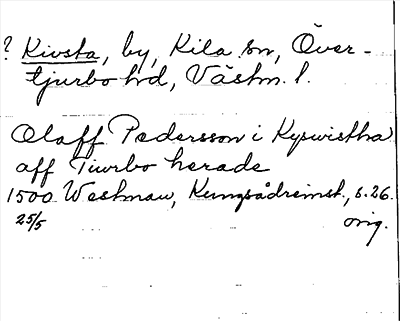 ? Kivsta, by, Kila sn, Över-
tjurbo hd, Västm. l.
Olaff Pedersson i Kyswistha
aff Tiurbo herade
1500 Westmau, Kungsådreinst., s. 26.
25/5 orig.